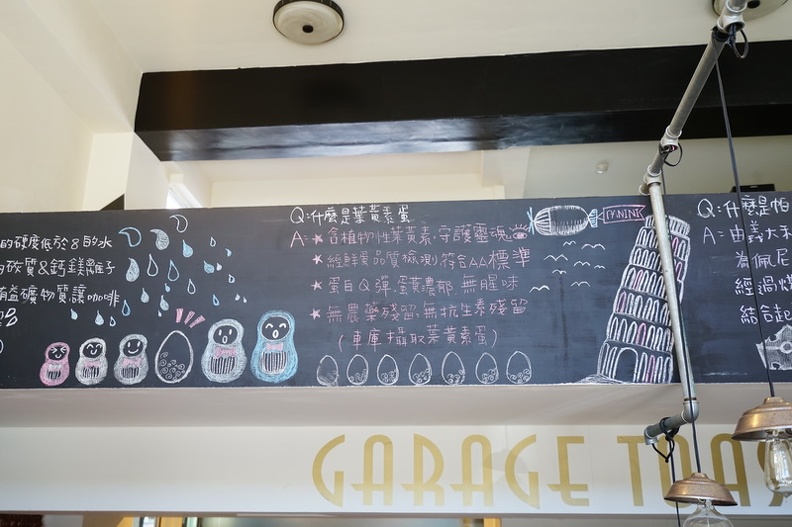 的硬度低於8的水
碳質&鈣鎂離子
益礦物質讓咖啡
Q:什麼是葉黃素蛋
A:★含植物性葉黃素.守護靈魂窗
★經鮮度品質檢測符合AA標準
★蛋白Q彈,蛋黃濃郁.無腥味
★無農藥殘留.無抗生素殘留
(車庫攝取葉黃素蛋)
PANINI
Q:什麼是帕
A:由義大利
為佩尼
經過烘
結合起
GARAGE TOAS